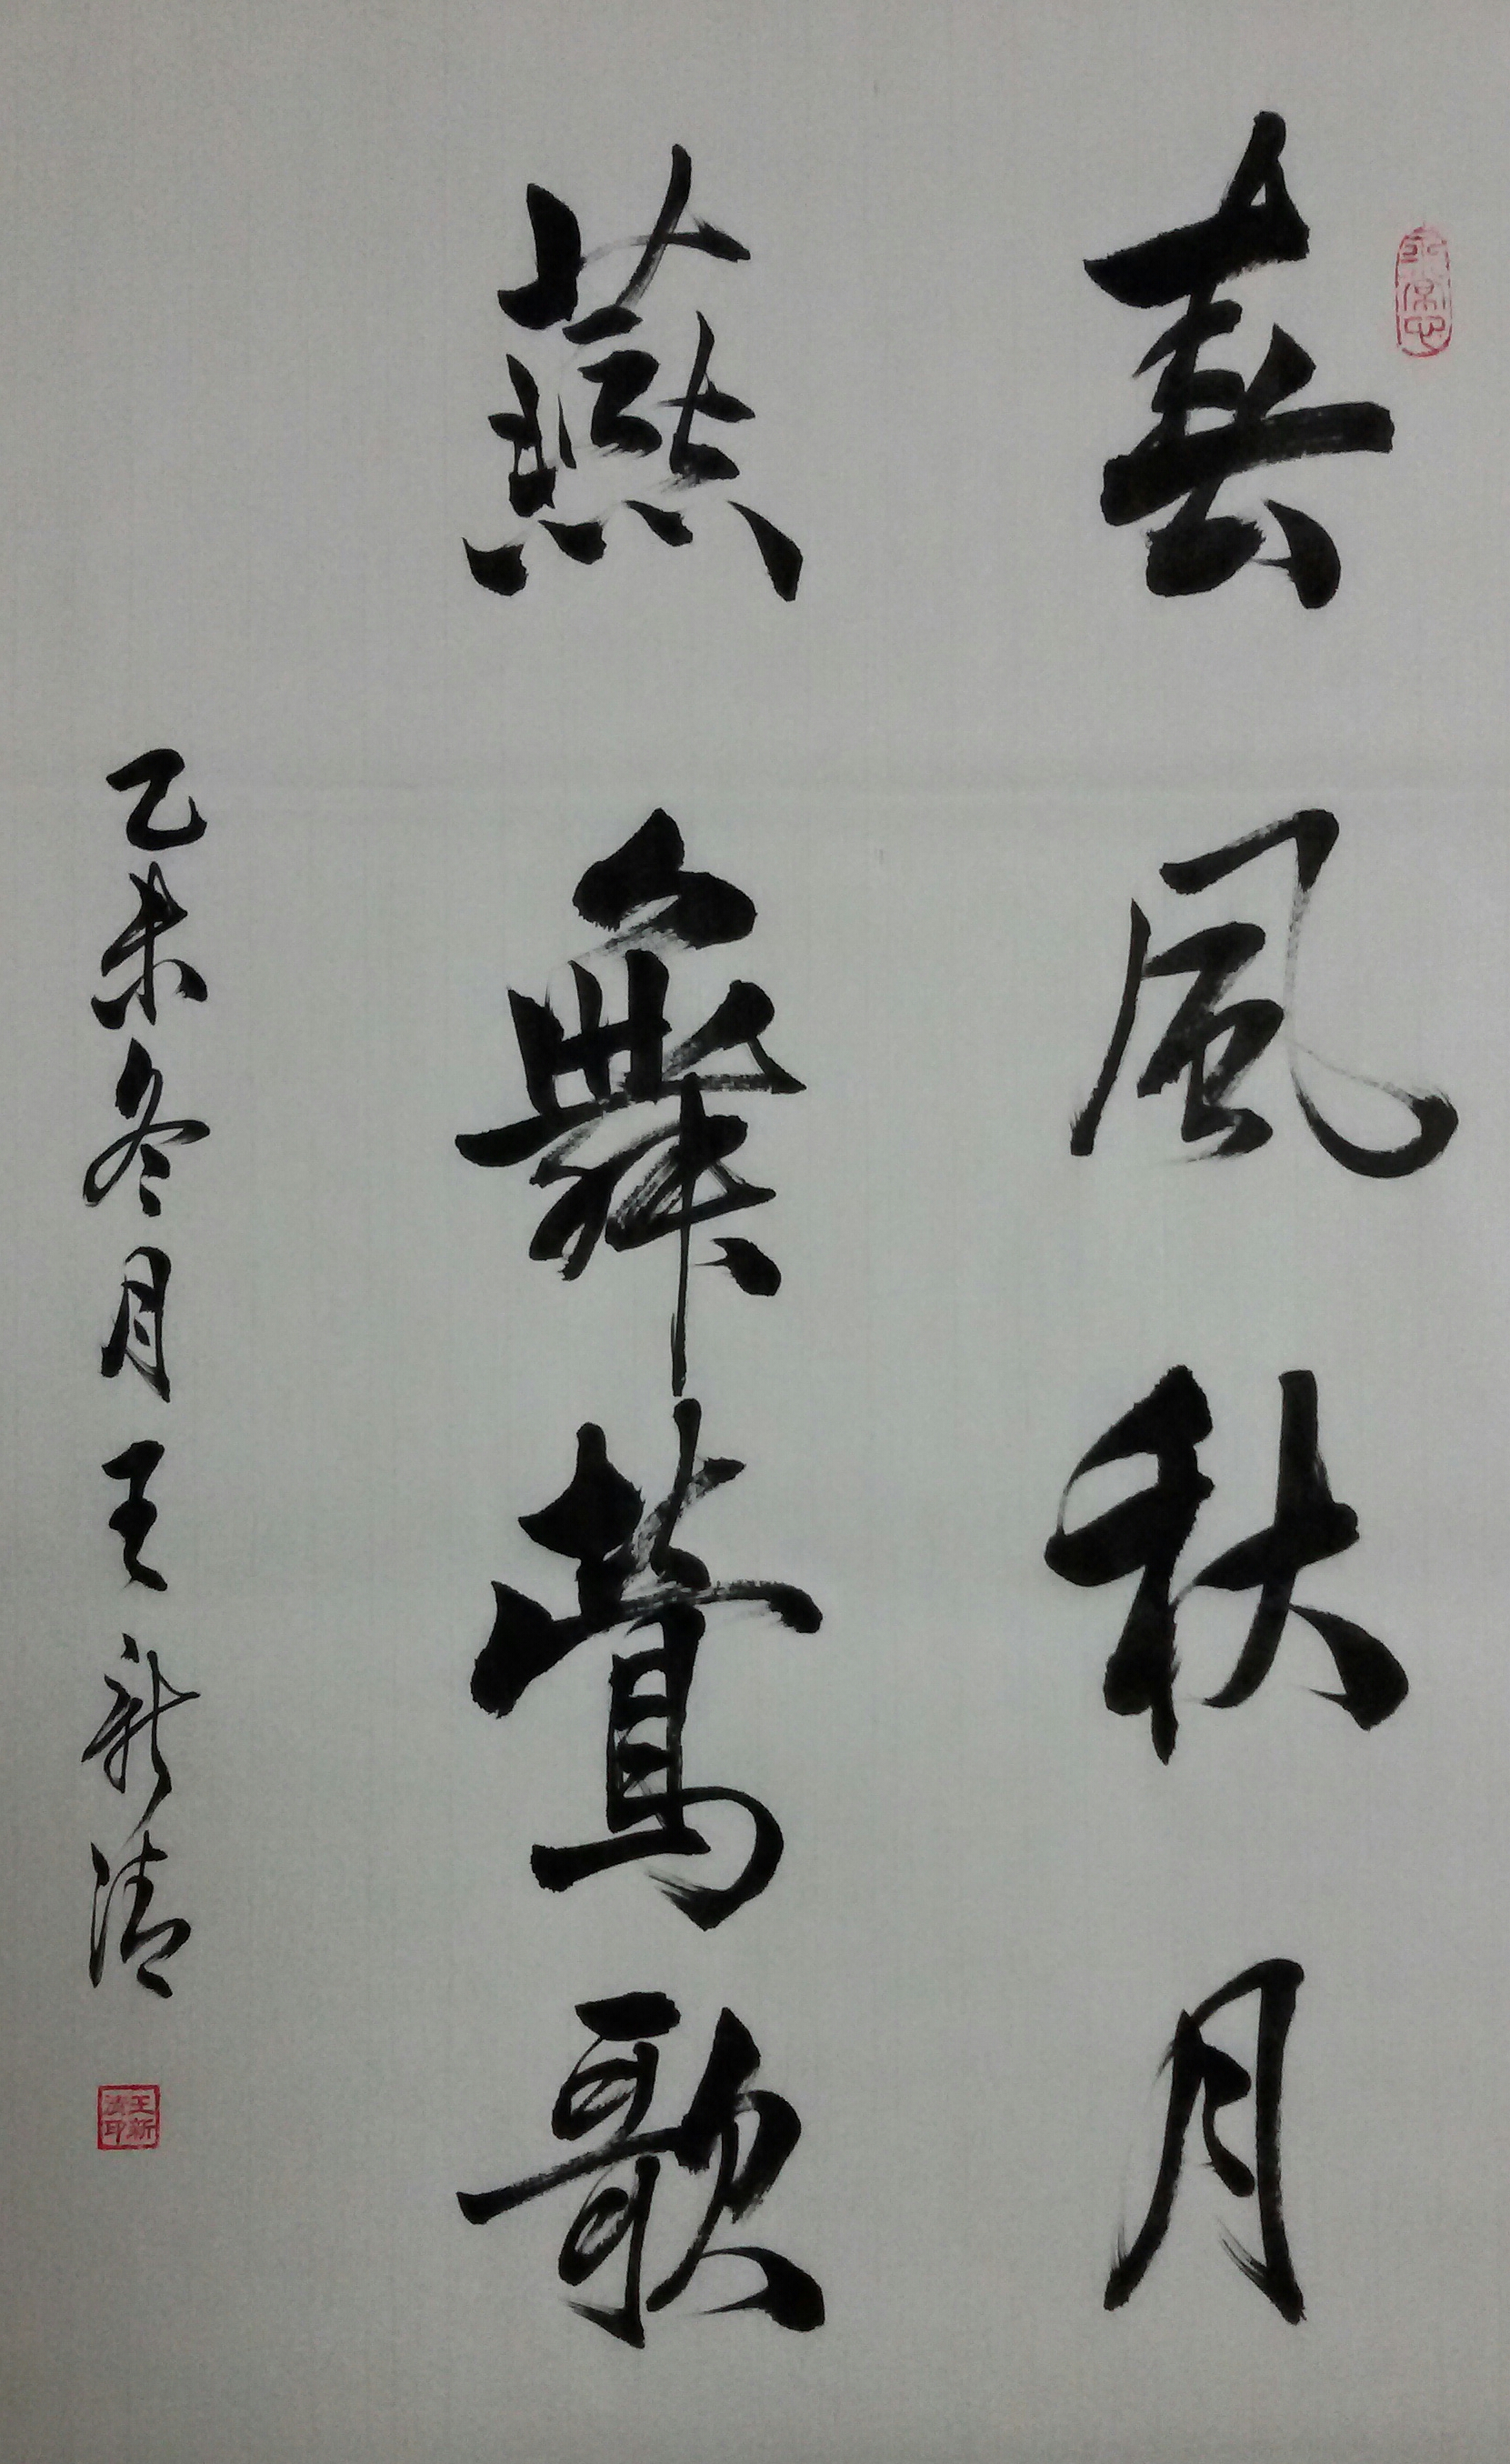 春風秋月
燕舞鶯歌
乙未冬月王新清
王新清印